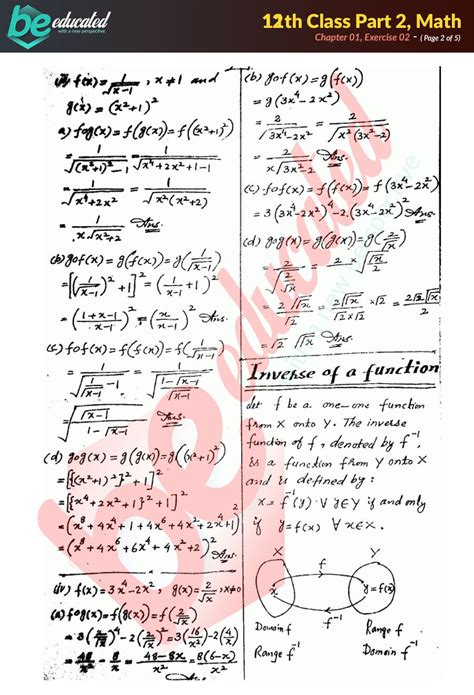 be educated
with a new perspective
12th Class Part 2, Math
Chapter 01, Exercise 02 - ( Page 2 of 5)
f(x) = 1/√(x-1) , x ≠ 1 and
g(x) = (x²+1)²
a) fog(x) = f(g(x)) = f((x²+1)²)
= 1/√((x²+1)²-1) = 1/√(x⁴+2x²+1-1)
= 1/√(x⁴+2x²) = 1/√(x²(x²+2))
= 1/(x√(x²+2)) Ans.
(b) gof(x) = g(f(x)) = g(1/√(x-1))
= [(1/√(x-1))²+1]² = (1/(x-1)+1)²
= ((1+x-1)/(x-1))² = (x/(x-1))² Ans.
(c) fof(x) = f(f(x)) = f(1/√(x-1))
= 1/√(1/√(x-1) - 1) = 1/√((1-√(x-1))/√(x-1))
= √(√(x-1)/(1-√(x-1))) Ans.
(d) gog(x) = g(g(x)) = g((x²+1)²)
= [{(x²+1)²}²+1]²
= [{x⁴+2x²+1}²+1]²
= (x⁸+4x⁴+1+4x⁶+4x²+2x⁴+1)²
= (x⁸+4x⁶+6x⁴+4x²+2)² Ans.
(iv) f(x) = 3x⁴-2x², g(x) = 2/√x, x≠0
(a) fog(x) = f(g(x)) = f(2/√x)
= 3(2/√x)⁴-2(2/√x)² = 3(16/x²)-2(4/x)
= 48/x² - 8/x = (48-8x)/x² = 8(6-x)/x²
(b) gof(x) = g(f(x))
= g(3x⁴-2x²)
= 2/√(3x⁴-2x²) = 2/√(x²(3x²-2))
= 2/(x√(3x²-2)) Ans.
(c) fof(x) = f(f(x)) = f(3x⁴-2x²)
= 3(3x⁴-2x²)⁴-2(3x⁴-2x²)² Ans.
(d) gog(x) = g(g(x)) = g(2/√x)
= 2/√(2/√x) = 2 × √(√x/2)
= 2√√x/√2 = 2√√x/√2 × √2/√2 = 2√2√√x/2
= √2 √√x Ans.
Inverse of a function
Let f be a one-one function
from X onto Y. The inverse
function of f, denoted by f⁻¹
is a function from Y onto X
and is defined by:
x = f⁻¹(y) ∀ y∈Y if and only
if y = f(x) ∀ x∈X.
X f Y
x y = f(x)
f⁻¹
Domain f Range f
Range f⁻¹ Domain f⁻¹
be educated